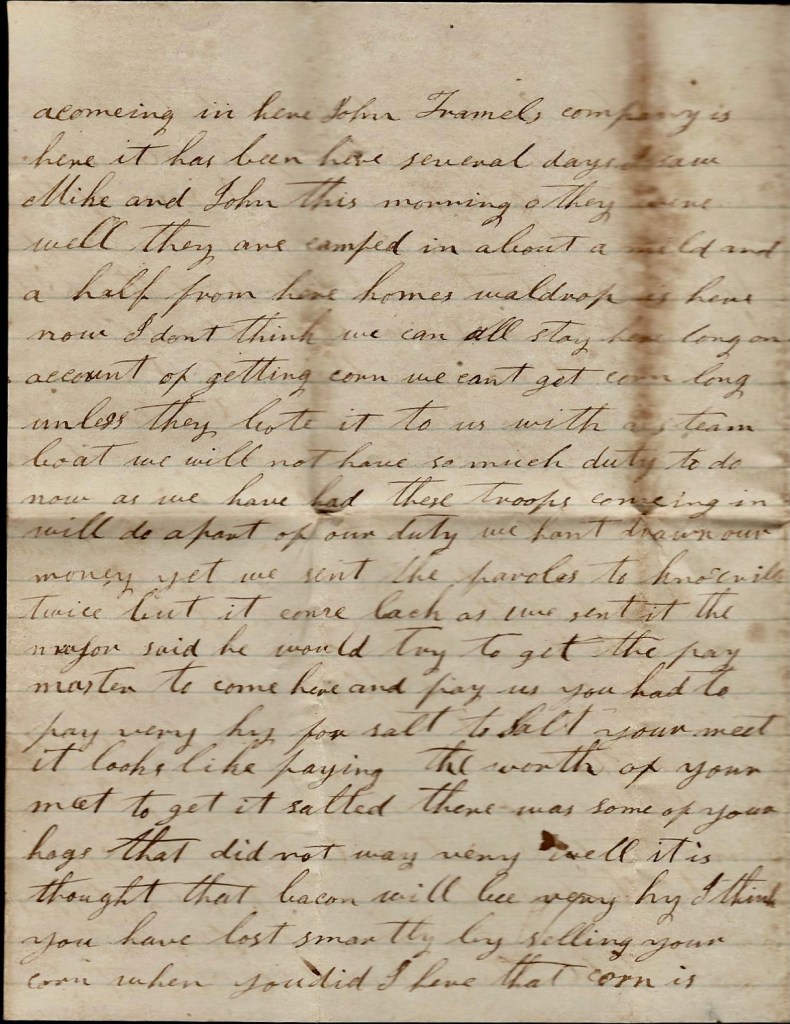 acomeing in here John Tramels company is
here it has been here several days I saw
Mike and John this morning they were
well they are camped in about a mild and
a half from here homes waldrop is here
now I dont think we can all stay here long on
account of getting corn we cant get corn long
unless they bote it to us with a steam
boat we will not have so much duty to do
now as we have had these troops comeing in
will do apart of our duty we hant drawn our
money yet we sent the paroles to knoxvill
twice but it come back as we sent it the
major said he would try to get the pay
master to come here and pay us you had to
pay very hy for salt to salt your meet
it looks like paying the worth of your
meet to get it salted there was some of your
hogs that did not way very well it is
thought that bacon will bee very hy I think
you have lost smartly by selling your
corn when you did I here that corn is